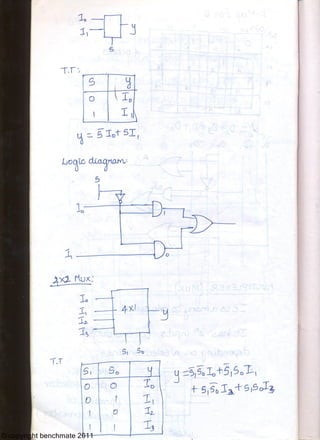 I₀
I₁
y
S
T.T:
S y
0 I₀
1 I₁
y = S̅ I₀ + S I₁
Logic diagram:
S
I₀
1
I₁
0
2x2 Mux:
I₀
I₁ 4x1 y
I₂
I₃
S₁ S₀
T.T
S₁ S₀ y
0 0 I₀
0 1 I₁
1 0 I₂
1 1 I₃
y = S̅₁S̅₀I₀ + S̅₁S₀I₁
+ S₁S̅₀I₂ + S₁S₀I₃
© Copyright benchmate 2011